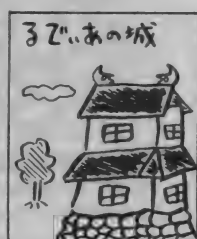 るでぃあの城